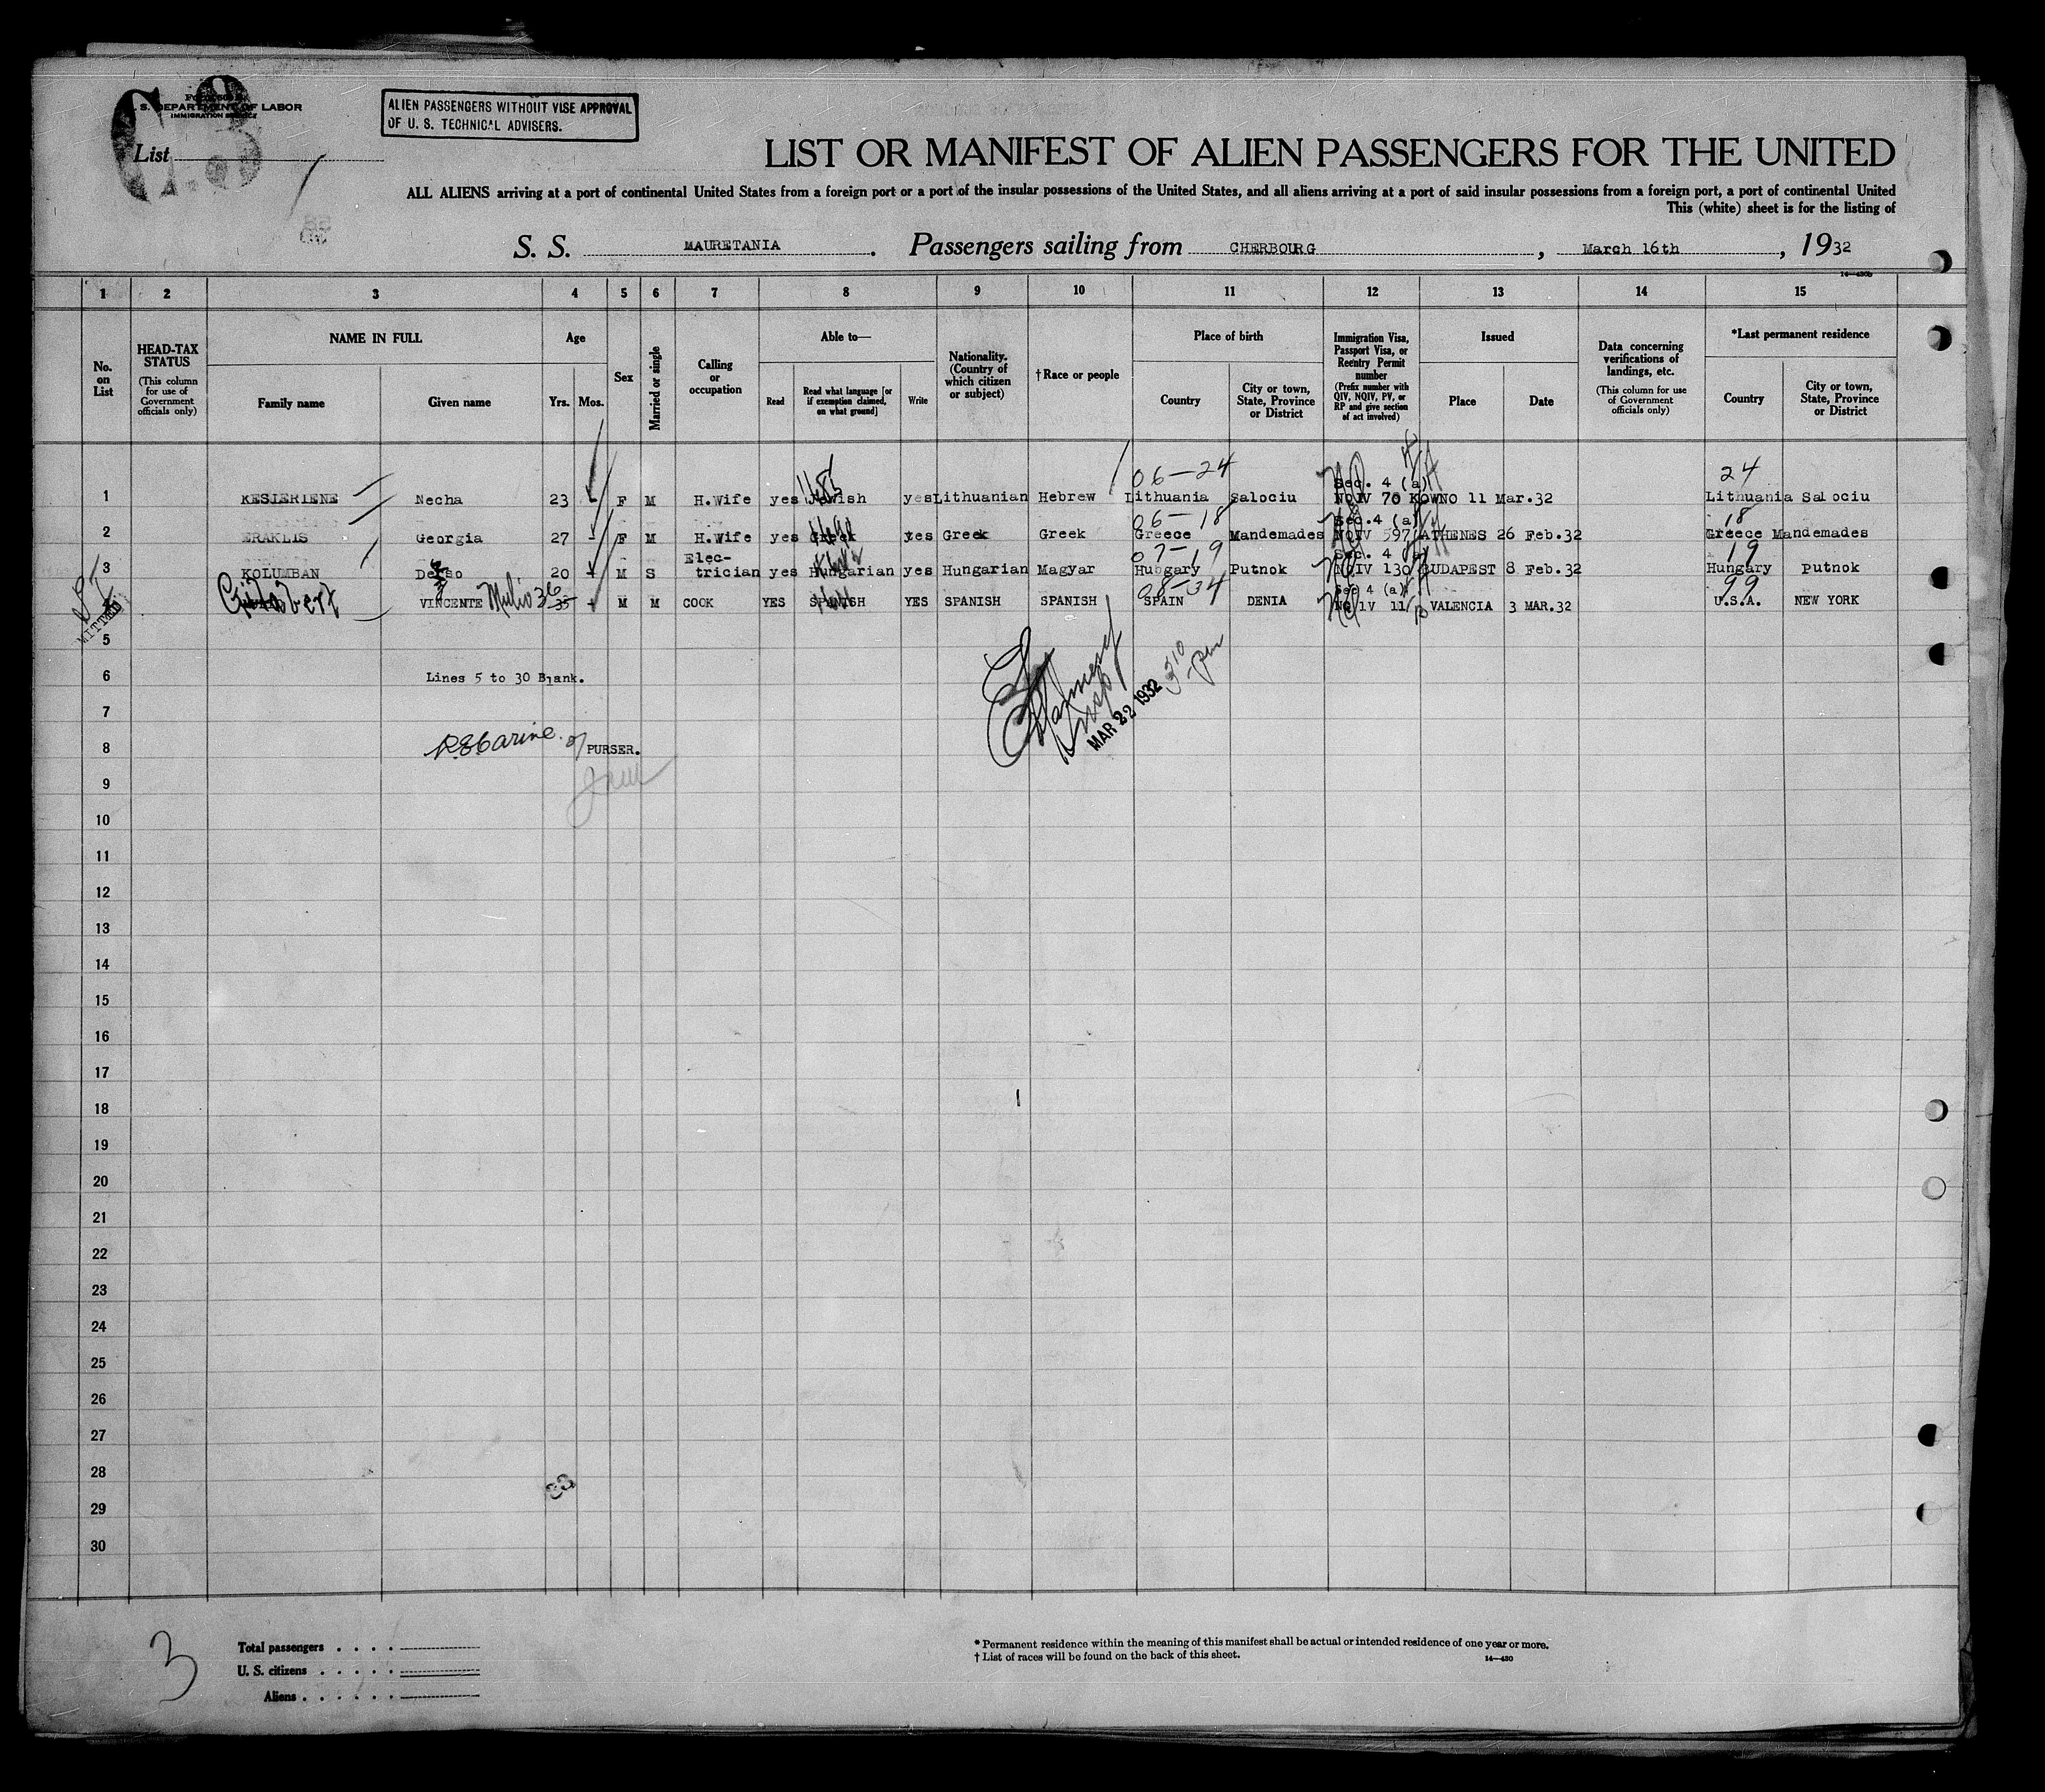 U. S. DEPARTMENT OF LABOR
IMMIGRATION SERVICE
ALIEN PASSENGERS WITHOUT VISE APPROVAL
OF U. S. TECHNICAL ADVISERS.
List
LIST OR MANIFEST OF ALIEN PASSENGERS FOR THE UNITED
ALL ALIENS arriving at a port of continental United States from a foreign port or a port of the insular possessions of the United States, and all aliens arriving at a port of said insular possessions from a foreign port, a port of continental United
This (white) sheet is for the listing of
S. S. MAURETANIA. Passengers sailing from CHERBOURG, March 16th, 1932
14—430b
1 2 3 4 5 6 7 8 9 10 11 12 13 14 15
No. on List
HEAD-TAX STATUS (This column for use of Government officials only)
NAME IN FULL
Family name Given name
Age
Yrs. Mos.
Sex
Married or single
Calling or occupation
Able to—
Read Read what language [or if exemption claimed, on what ground] Write
Nationality. (Country of which citizen or subject)
†Race or people
Place of birth
Country City or town, State, Province or District
Immigration Visa, Passport Visa, or Reentry Permit number (Prefix number with QIV, NQIV, PV, or RP and give section of act involved)
Issued
Place Date
Data concerning verifications of landings, etc. (This column for use of Government officials only)
*Last permanent residence
Country City or town, State, Province or District
06-24 Sec. 4 (a) 24
1 KESIERIENE Necha 23 - F M H.Wife yes Jewish yes Lithuanian Hebrew Lithuania Salociu NQIV 70 KOWNO 11 Mar.32 Lithuania Salociu
06-18 Sec.4 (a) 18
2 ERAKLIS Georgia 27 - F M H.Wife yes Greek yes Greek Greek Greece Mandemades NQIV 597 ATHENES 26 Feb.32 Greece Mandemades
Elec- 07-19 Sec. 4 (a) 19
3 KOLUMBAN 20 M S trician yes Hungarian yes Hungarian Magyar Hungary Putnok NQIV 130 BUDAPEST 8 Feb.32 Hungary Putnok
08-34 Sec 4 (a) 99
Gilabert VINCENTE 36 35 M M COOK YES SPANISH YES SPANISH SPANISH SPAIN DENIA NQ IV 11 VALENCIA 3 MAR.32 U.S.A. NEW YORK
5
6 Lines 5 to 30 Blank.
MAR 22 1932 3 10 pm
7
8 PURSER.
9
10
11
12
13
14
15
16
17
18
19
20
21
22
23
24
25
26
27
28
29
30
3
Total passengers
U. S. citizens
Aliens
* Permanent residence within the meaning of this manifest shall be actual or intended residence of one year or more.
† List of races will be found on the back of this sheet.
14—430